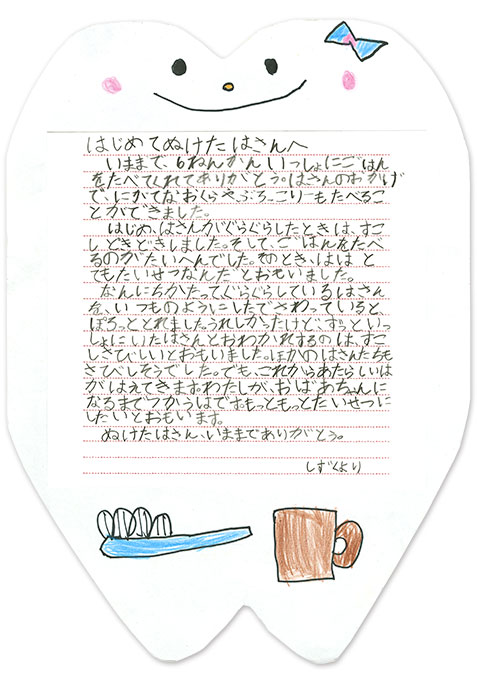 はじめてぬけたはさんへ
いままで、6ねんかんいっしょにごはん
をたべてくれてありがとう。はさんのおかげ
で、にがてなおくらやぶろっこりーもたべるこ
とができました。
はじめ、はさんがぐらぐらしたときは、すこ
しどきどきしました。そして、ごはんをたべ
るのがたいへんでした。そのとき、はは と
てもたいせつなんだとおもいました。
なんにちかたってぐらぐらしているはさん
を、いつものようにしたでさわっていると、
ぽろっととれました。うれしかったけど、ずっといっ
しょにいたはさんとおわかれするのは、すこ
しさびしいとおもいました。ほかのはさんたちも
さびしそうでした。でも、これからあたらしいは
がはえてきます。わたしが、おばあちゃんに
なるまでつかうはです。もっともっとたいせつに
したいとおもいます。
ぬけたはさん、いままでありがとう。
しずくより